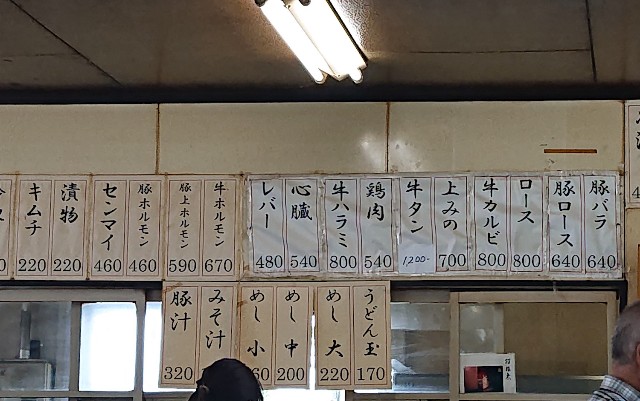 豚バラ 640
豚ロース 640
ロース 800
牛カルビ 800
上みの 700
牛タン 1,200-
鶏肉 540
牛ハラミ 800
心臓 540
レバー 480
牛ホルモン 670
豚上ホルモン 590
豚ホルモン 460
センマイ 460
漬物 220
キムチ 220
うどん玉 170
めし大 220
めし中 200
めし小 60
みそ汁
豚汁 320